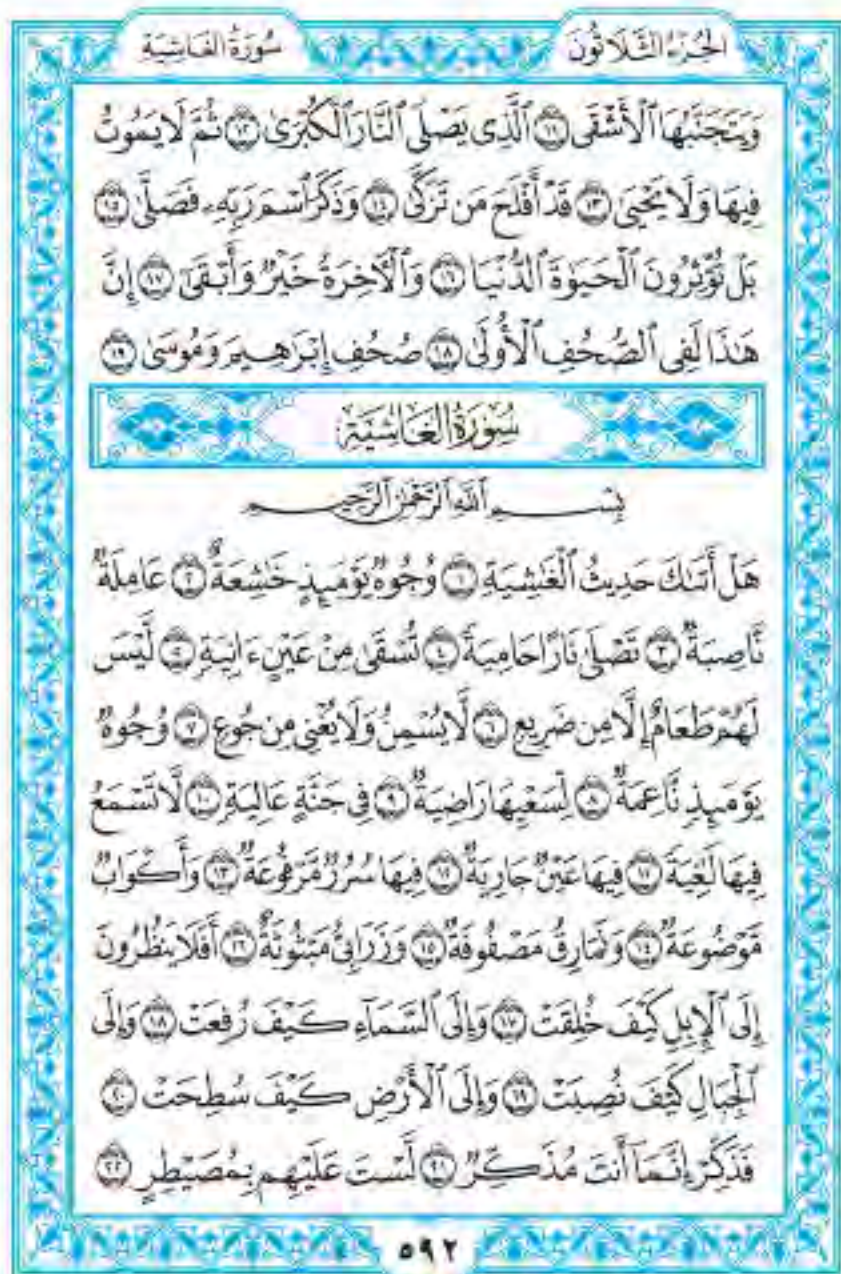 الجُزْءُ الثَّلَاثُونَ
سُورَةُ الغَاشِيَةِ
وَيَتَجَنَّبُهَا ٱلْأَشْقَى ١١ ٱلَّذِى يَصْلَى ٱلنَّارَ ٱلْكُبْرَىٰ ١٢ ثُمَّ لَا يَمُوتُ
فِيهَا وَلَا يَحْيَىٰ ١٣ قَدْ أَفْلَحَ مَن تَزَكَّىٰ ١٤ وَذَكَرَ ٱسْمَ رَبِّهِۦ فَصَلَّىٰ ١٥
بَلْ تُؤْثِرُونَ ٱلْحَيَوٰةَ ٱلدُّنْيَا ١٦ وَٱلْآخِرَةُ خَيْرٌ وَأَبْقَىٰٓ ١٧ إِنَّ
هَٰذَا لَفِى ٱلصُّحُفِ ٱلْأُولَىٰ ١٨ صُحُفِ إِبْرَٰهِيمَ وَمُوسَىٰ ١٩
سُورَةُ الغَاشِيَةِ
بِسْمِ ٱللَّهِ ٱلرَّحْمَٰنِ ٱلرَّحِيمِ
هَلْ أَتَىٰكَ حَدِيثُ ٱلْغَٰشِيَةِ ١ وُجُوهٌ يَوْمَئِذٍ خَٰشِعَةٌ ٢ عَامِلَةٌ
نَّاصِبَةٌ ٣ تَصْلَىٰ نَارًا حَامِيَةً ٤ تُسْقَىٰ مِنْ عَيْنٍ ءَانِيَةٍ ٥ لَّيْسَ
لَهُمْ طَعَامٌ إِلَّا مِن ضَرِيعٍ ٦ لَّا يُسْمِنُ وَلَا يُغْنِى مِن جُوعٍ ٧ وُجُوهٌ
يَوْمَئِذٍ نَّاعِمَةٌ ٨ لِّسَعْيِهَا رَاضِيَةٌ ٩ فِى جَنَّةٍ عَالِيَةٍ ١٠ لَّا تَسْمَعُ
فِيهَا لَٰغِيَةً ١١ فِيهَا عَيْنٌ جَارِيَةٌ ١٢ فِيهَا سُرُرٌ مَّرْفُوعَةٌ ١٣ وَأَكْوَابٌ
مَّوْضُوعَةٌ ١٤ وَنَمَارِقُ مَصْفُوفَةٌ ١٥ وَزَرَابِىُّ مَبْثُوثَةٌ ١٦ أَفَلَا يَنظُرُونَ
إِلَى ٱلْإِبِلِ كَيْفَ خُلِقَتْ ١٧ وَإِلَى ٱلسَّمَآءِ كَيْفَ رُفِعَتْ ١٨ وَإِلَى
ٱلْجِبَالِ كَيْفَ نُصِبَتْ ١٩ وَإِلَى ٱلْأَرْضِ كَيْفَ سُطِحَتْ ٢٠
فَذَكِّرْ إِنَّمَآ أَنتَ مُذَكِّرٌ ٢١ لَّسْتَ عَلَيْهِم بِمُصَيْطِرٍ ٢٢
٥٩٢